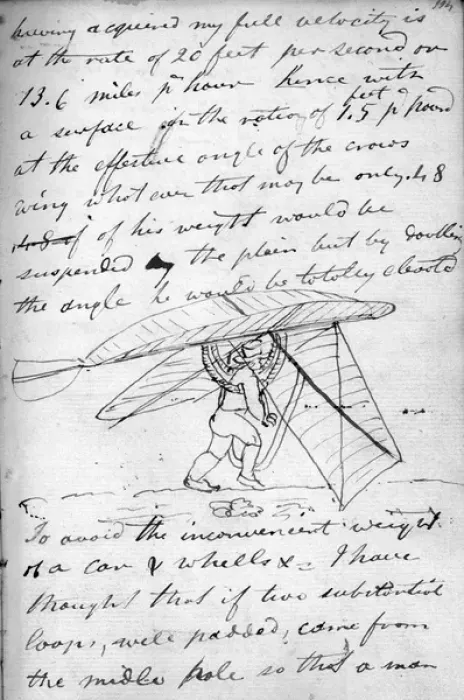 having acquired my full velocity is
at the rate of 20 feet per second or
13.6 miles pr hour Hence with
a surface in the ratio of 1.5 feet pr pound
at the effective angle of the crows
wing what ever that may be only .48
of his weight would be
suspended by the plain but by doubling
the angle he would be totally elevated
To avoid the inconvenient weight
of a car & whells &c I have
thought that if two substantial
loops, well padded, came from
the middle pole so that a man